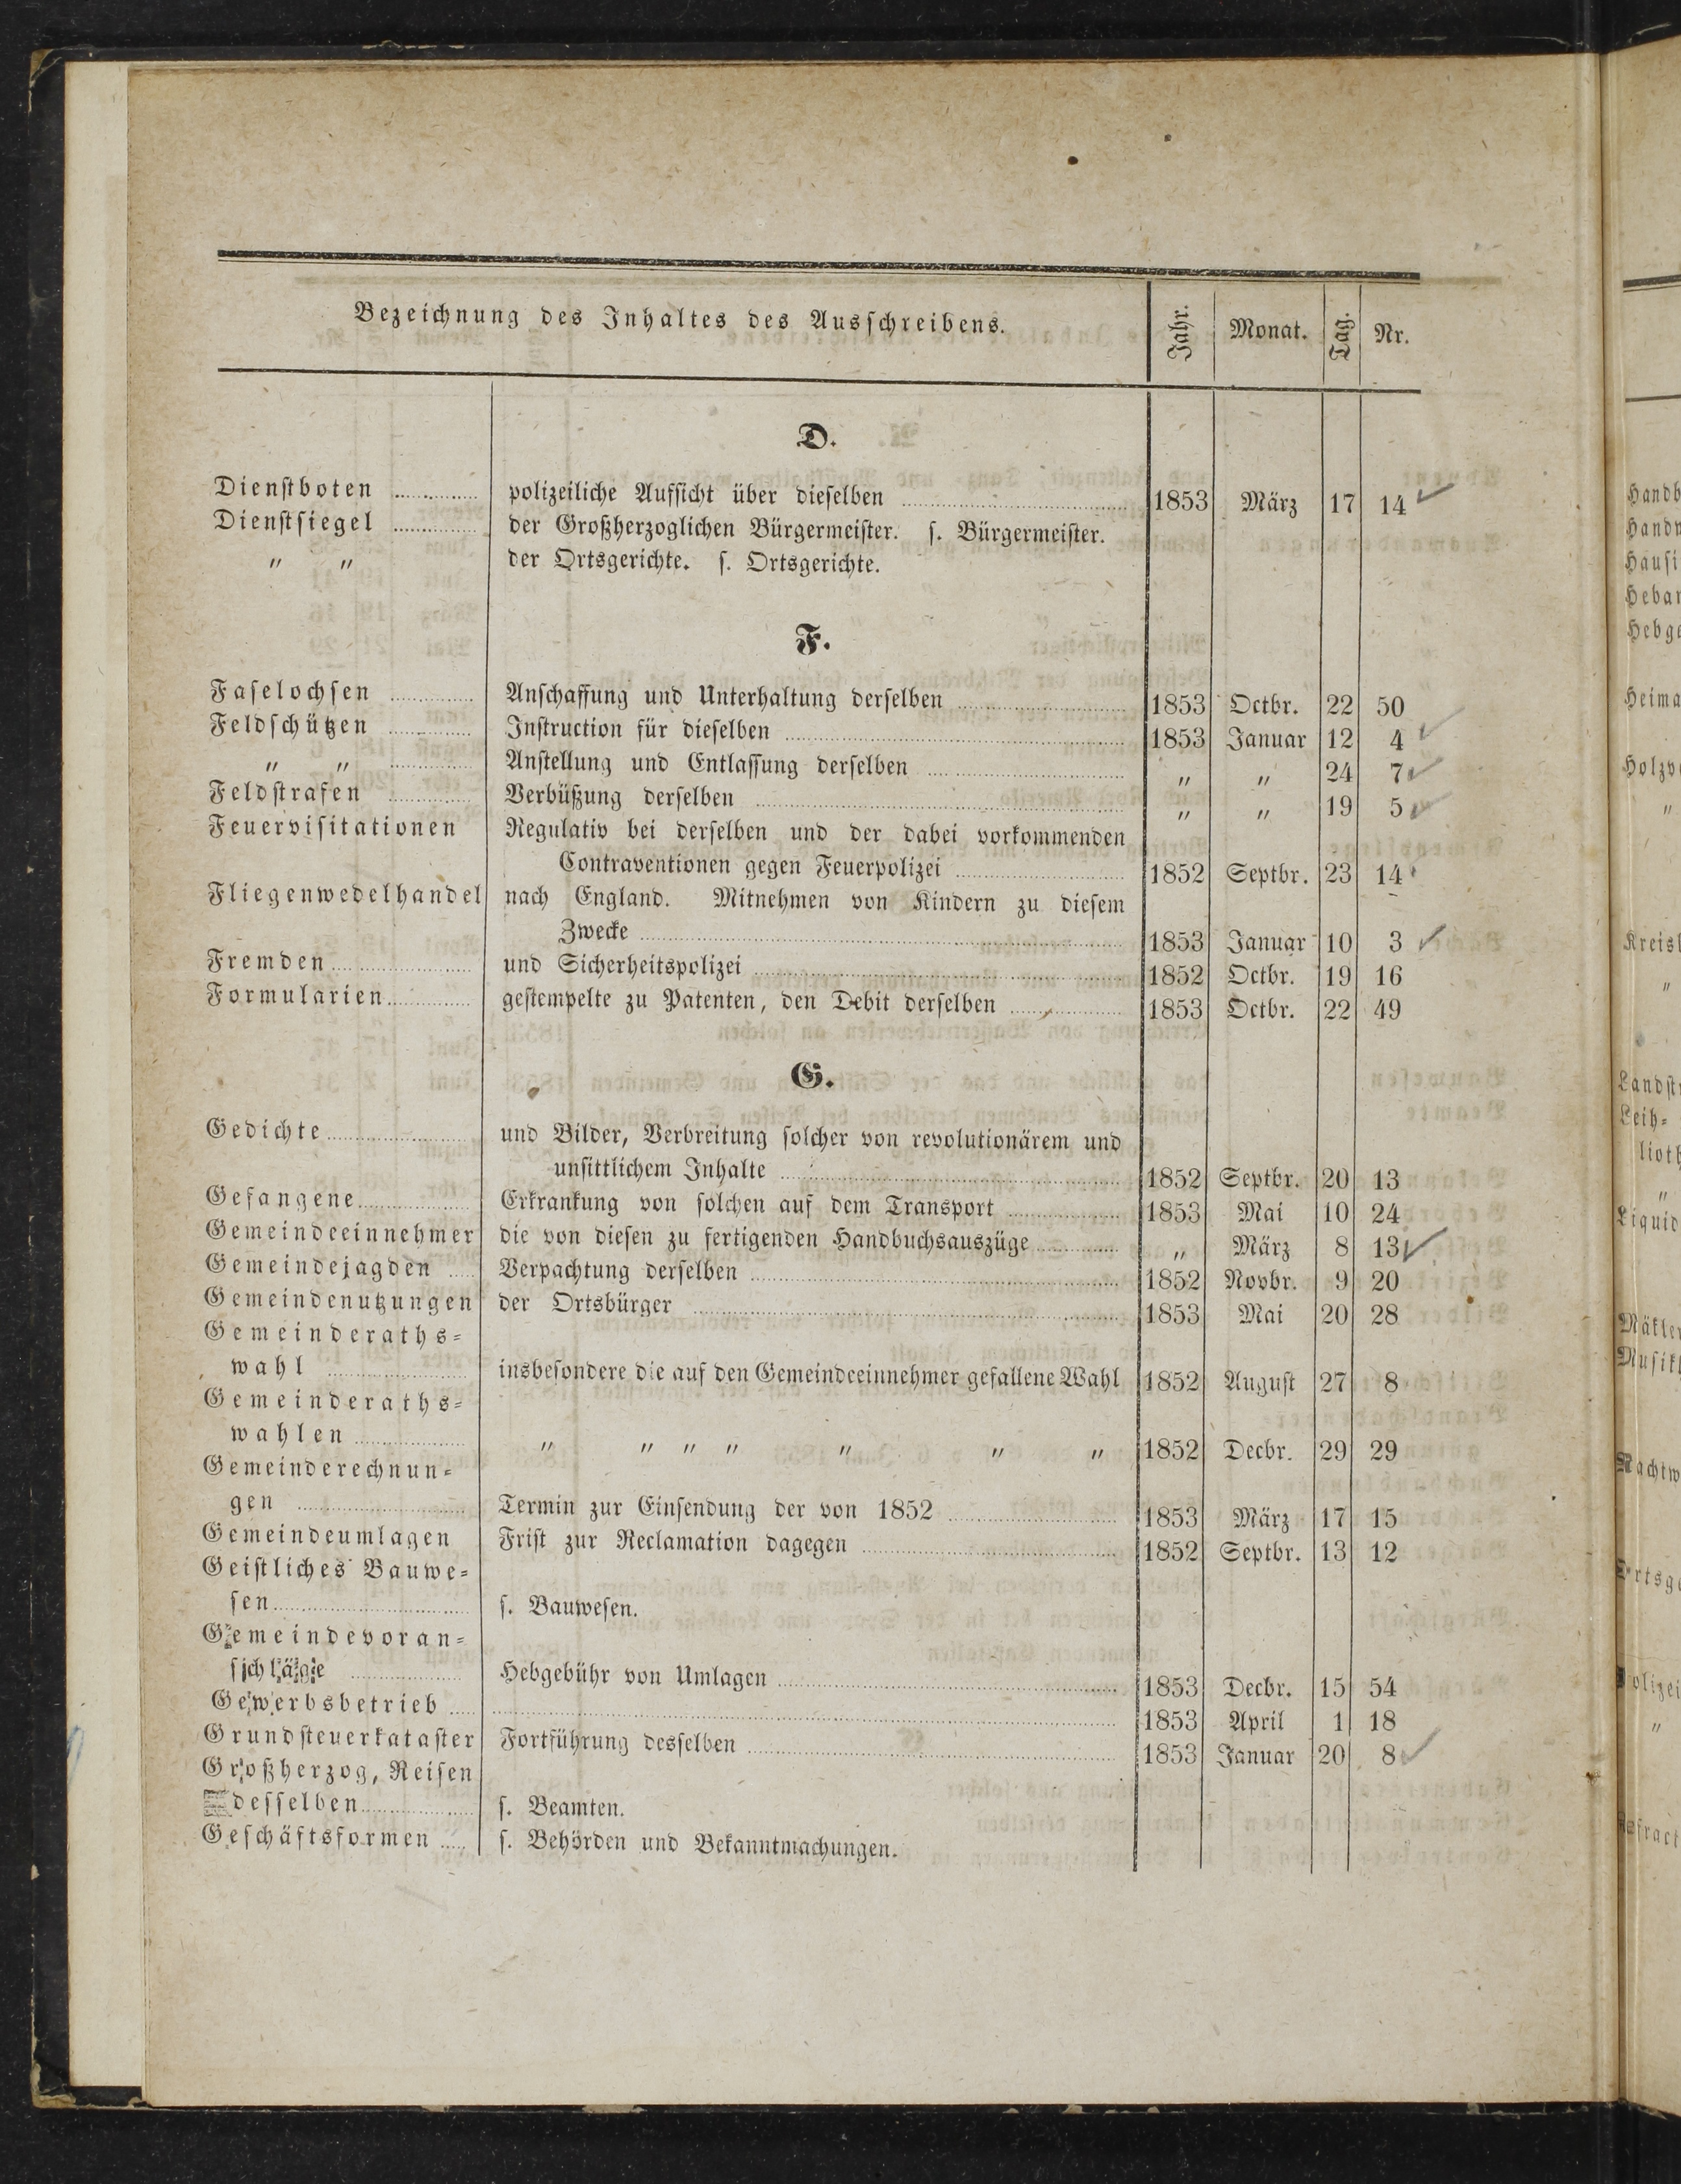 Bezeichnung des Inhaltes des Ausschreibens. Jahr. Monat. Tag. Nr.
D.
Dienstboten polizeiliche Aufsicht über dieselben 1853 März 17 14
Dienstsiegel der Großherzoglichen Bürgermeister. s. Bürgermeister.
" " der Ortsgerichte. s. Ortsgerichte.
F.
Faselochsen Anschaffung und Unterhaltung derselben 1853 Octbr. 22 50
Feldschützen Instruction für dieselben 1853 Januar 12 4
" " Anstellung und Entlassung derselben " " 24 7
Feldstrafen Verbüßung derselben " " 19 5
Feuervisitationen Regulativ bei derselben und der dabei vorkommenden
Contraventionen gegen Feuerpolizei 1852 Septbr. 23 14
Fliegenwedelhandel nach England. Mitnehmen von Kindern zu diesem
Zwecke 1853 Januar 10 3
Fremden und Sicherheitspolizei 1852 Octbr. 19 16
Formularien gestempelte zu Patenten, den Debit derselben 1853 Octbr. 22 49
G.
Gedichte und Bilder, Verbreitung solcher von revolutionärem und
unsittlichem Inhalte 1852 Septbr. 20 13
Gefangene Erkrankung von solchen auf dem Transport 1853 Mai 10 24
Gemeindeeinnehmer die von diesen zu fertigenden Handbuchsauszüge " März 8 13
Gemeindejagden Verpachtung derselben 1852 Novbr. 9 20
Gemeindenutzungen der Ortsbürger 1853 Mai 20 28
Gemeinderaths-
wahl insbesondere die auf den Gemeindeeinnehmer gefallene Wahl 1852 August 27 8
Gemeinderaths-
wahlen " " " " " " " 1852 Decbr. 29 29
Gemeinderechnun-
gen Termin zur Einsendung der von 1852 1853 März 17 15
Gemeindeumlagen Frist zur Reclamation dagegen 1852 Septbr. 13 12
Geistliches Bauwe-
sen s. Bauwesen.
Gemeindevoran-
schläge Hebgebühr von Umlagen 1853 Decbr. 15 54
Gewerbsbetrieb 1853 April 1 18
Grundsteuerkataster Fortführung desselben 1853 Januar 20 8
Großherzog, Reisen
desselben s. Beamten.
Geschäftsformen s. Behörden und Bekanntmachungen.